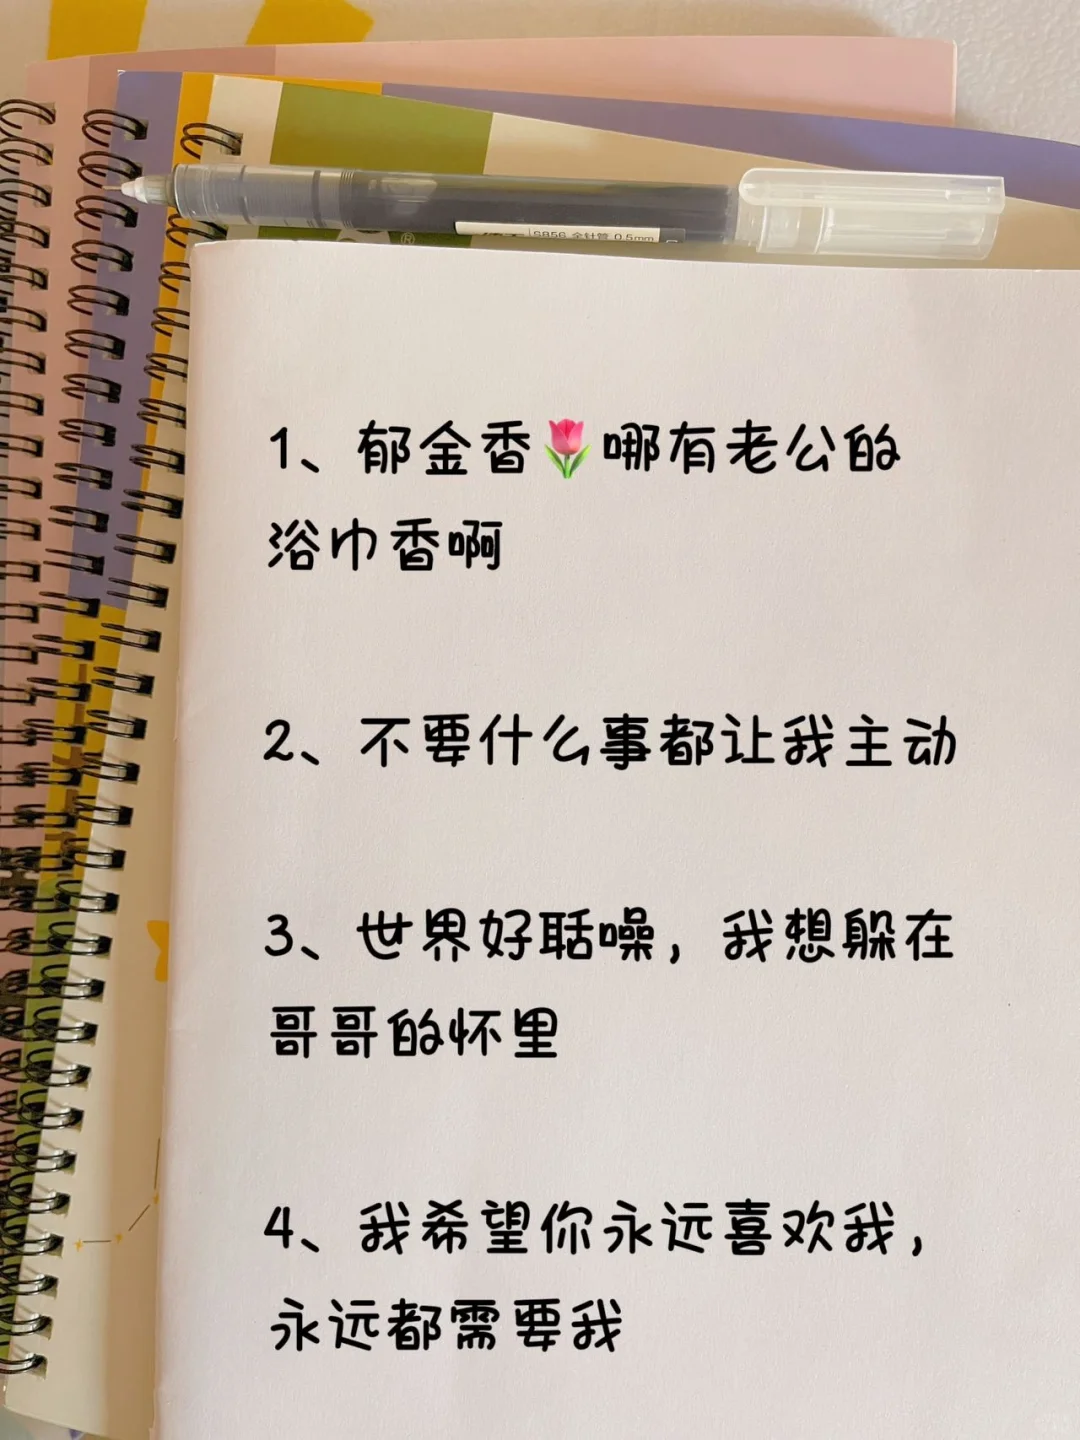 S856 全针管 0.5mm
®
1、郁金香🌷哪有老公的
浴巾香啊
2、不要什么事都让我主动
3、世界好聒噪，我想躲在
哥哥的怀里
4、我希望你永远喜欢我，
永远都需要我